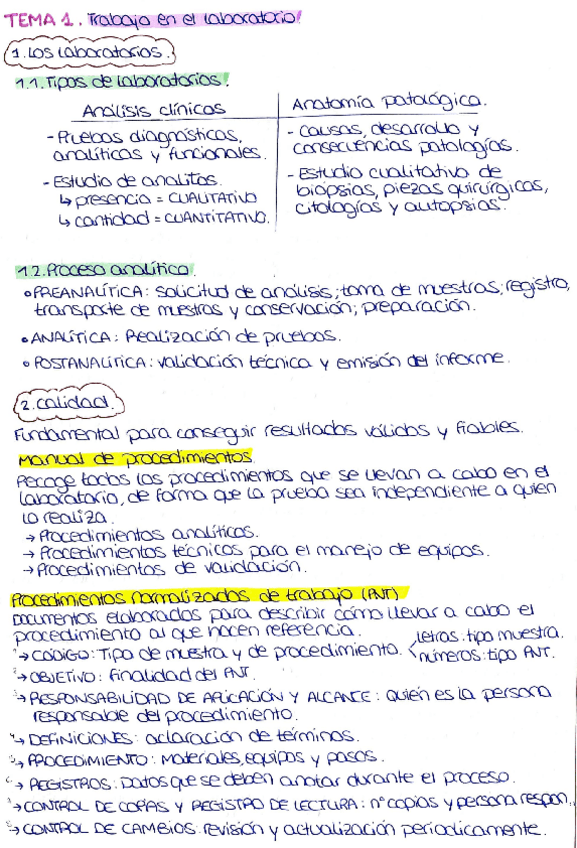 TEMA 1. Trabajo en el laboratorio!
1. Los laboratorios.
1.1. Tipos de laboratorios!
Análisis clínicos
- Pruebas diagnósticas,
analíticas y funcionales.
- Estudio de analitos.
↳ presencia = CUALITATIVO
↳ cantidad = CUANTITATIVO.
Anatomía patológica.
- Causas, desarrollo y
consecuencias patologías.
- Estudio cualitativo de
biopsias, piezas quirúrgicas,
citologías y autopsias.
1.2. Proceso analítico.
• PREANALÍTICA: solicitud de análisis; toma de muestras; registro,
transporte de muestras y conservación; preparación.
• ANALÍTICA: Realización de pruebas.
• POSTANALITICA: validación técnica y emisión del informe.
2. Calidad.
Fundamental para conseguir resultados válidos y fiables.
Manual de procedimientos
Recoge todos los procedimientos que se llevan a cabo en el
laboratorio, de forma que la prueba sea independiente a quien
lo realiza.
→ Procedimientos analíticos.
→ Procedimientos técnicos para el manejo de equipos.
→ Procedimientos de validación.
Procedimientos normalizados de trabajo (PNT)
Documentos elaborados para describir cómo llevar a cabo el
procedimiento al que hacen referencia.
1→ CÓDIGO: Tipo de muestra y de procedimiento. < letras: tipo muestra.
números: tipo PNT.
2→ OBJETIVO: finalidad del PNT.
3→ RESPONSABILIDAD DE APLICACIÓN Y ALCANCE: quién es la persona
responsable del procedimiento.
4→ DEFINICIONES: aclaración de términos.
5→ PROCEDIMIENTO: Materiales, equipos y pasos.
6→ REGISTROS: Datos que se deben anotar durante el proceso.
7→ CONTROL DE COPIAS Y REGISTRO DE LECTURA: nº copias y persona respon.
8→ CONTROL DE CAMBIOS: revisión y actualización periodicamente.